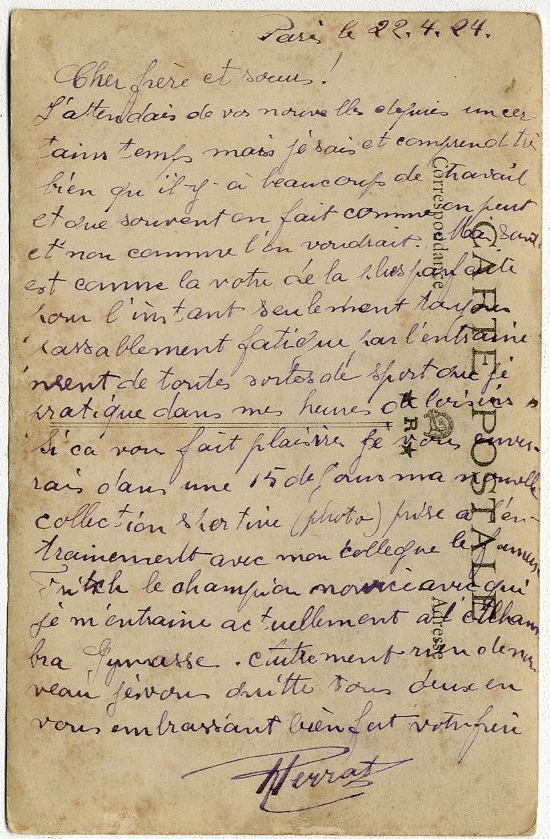 Paris le 22.4.24.
Cher frère et sœur !
J'attendais de vos nouvelles depuis un cer-
tains temps mais je sais et comprend très
bien qu'il-y-à beaucoup de travail
et que souvent on fait comme on peut
et non comme l'on voudrait. Ma santé
est comme la votre de la plus parfaite
pour l'instant seulement toujours
passablement fatigué par l'entraine-
ment de toutes sortes de sport que je
pratique dans mes heures de loisirs.
Si ca vous fait plaisire je vous enver-
rais dans une 15 de jours ma nouvelle
collection sportive (photo) prise a l'en-
trainement avec mon collegue le fameux
Fritch le champion novice avec qui
je m'entraine actuellement a l'Alham
bra Gymnasse. Autrement rien de nou
veau je vous quitte tous deux en
vous embrassant bien fort votre frère
Perrat
CARTE POSTALE
Correspondance
Adresse
★ R ★